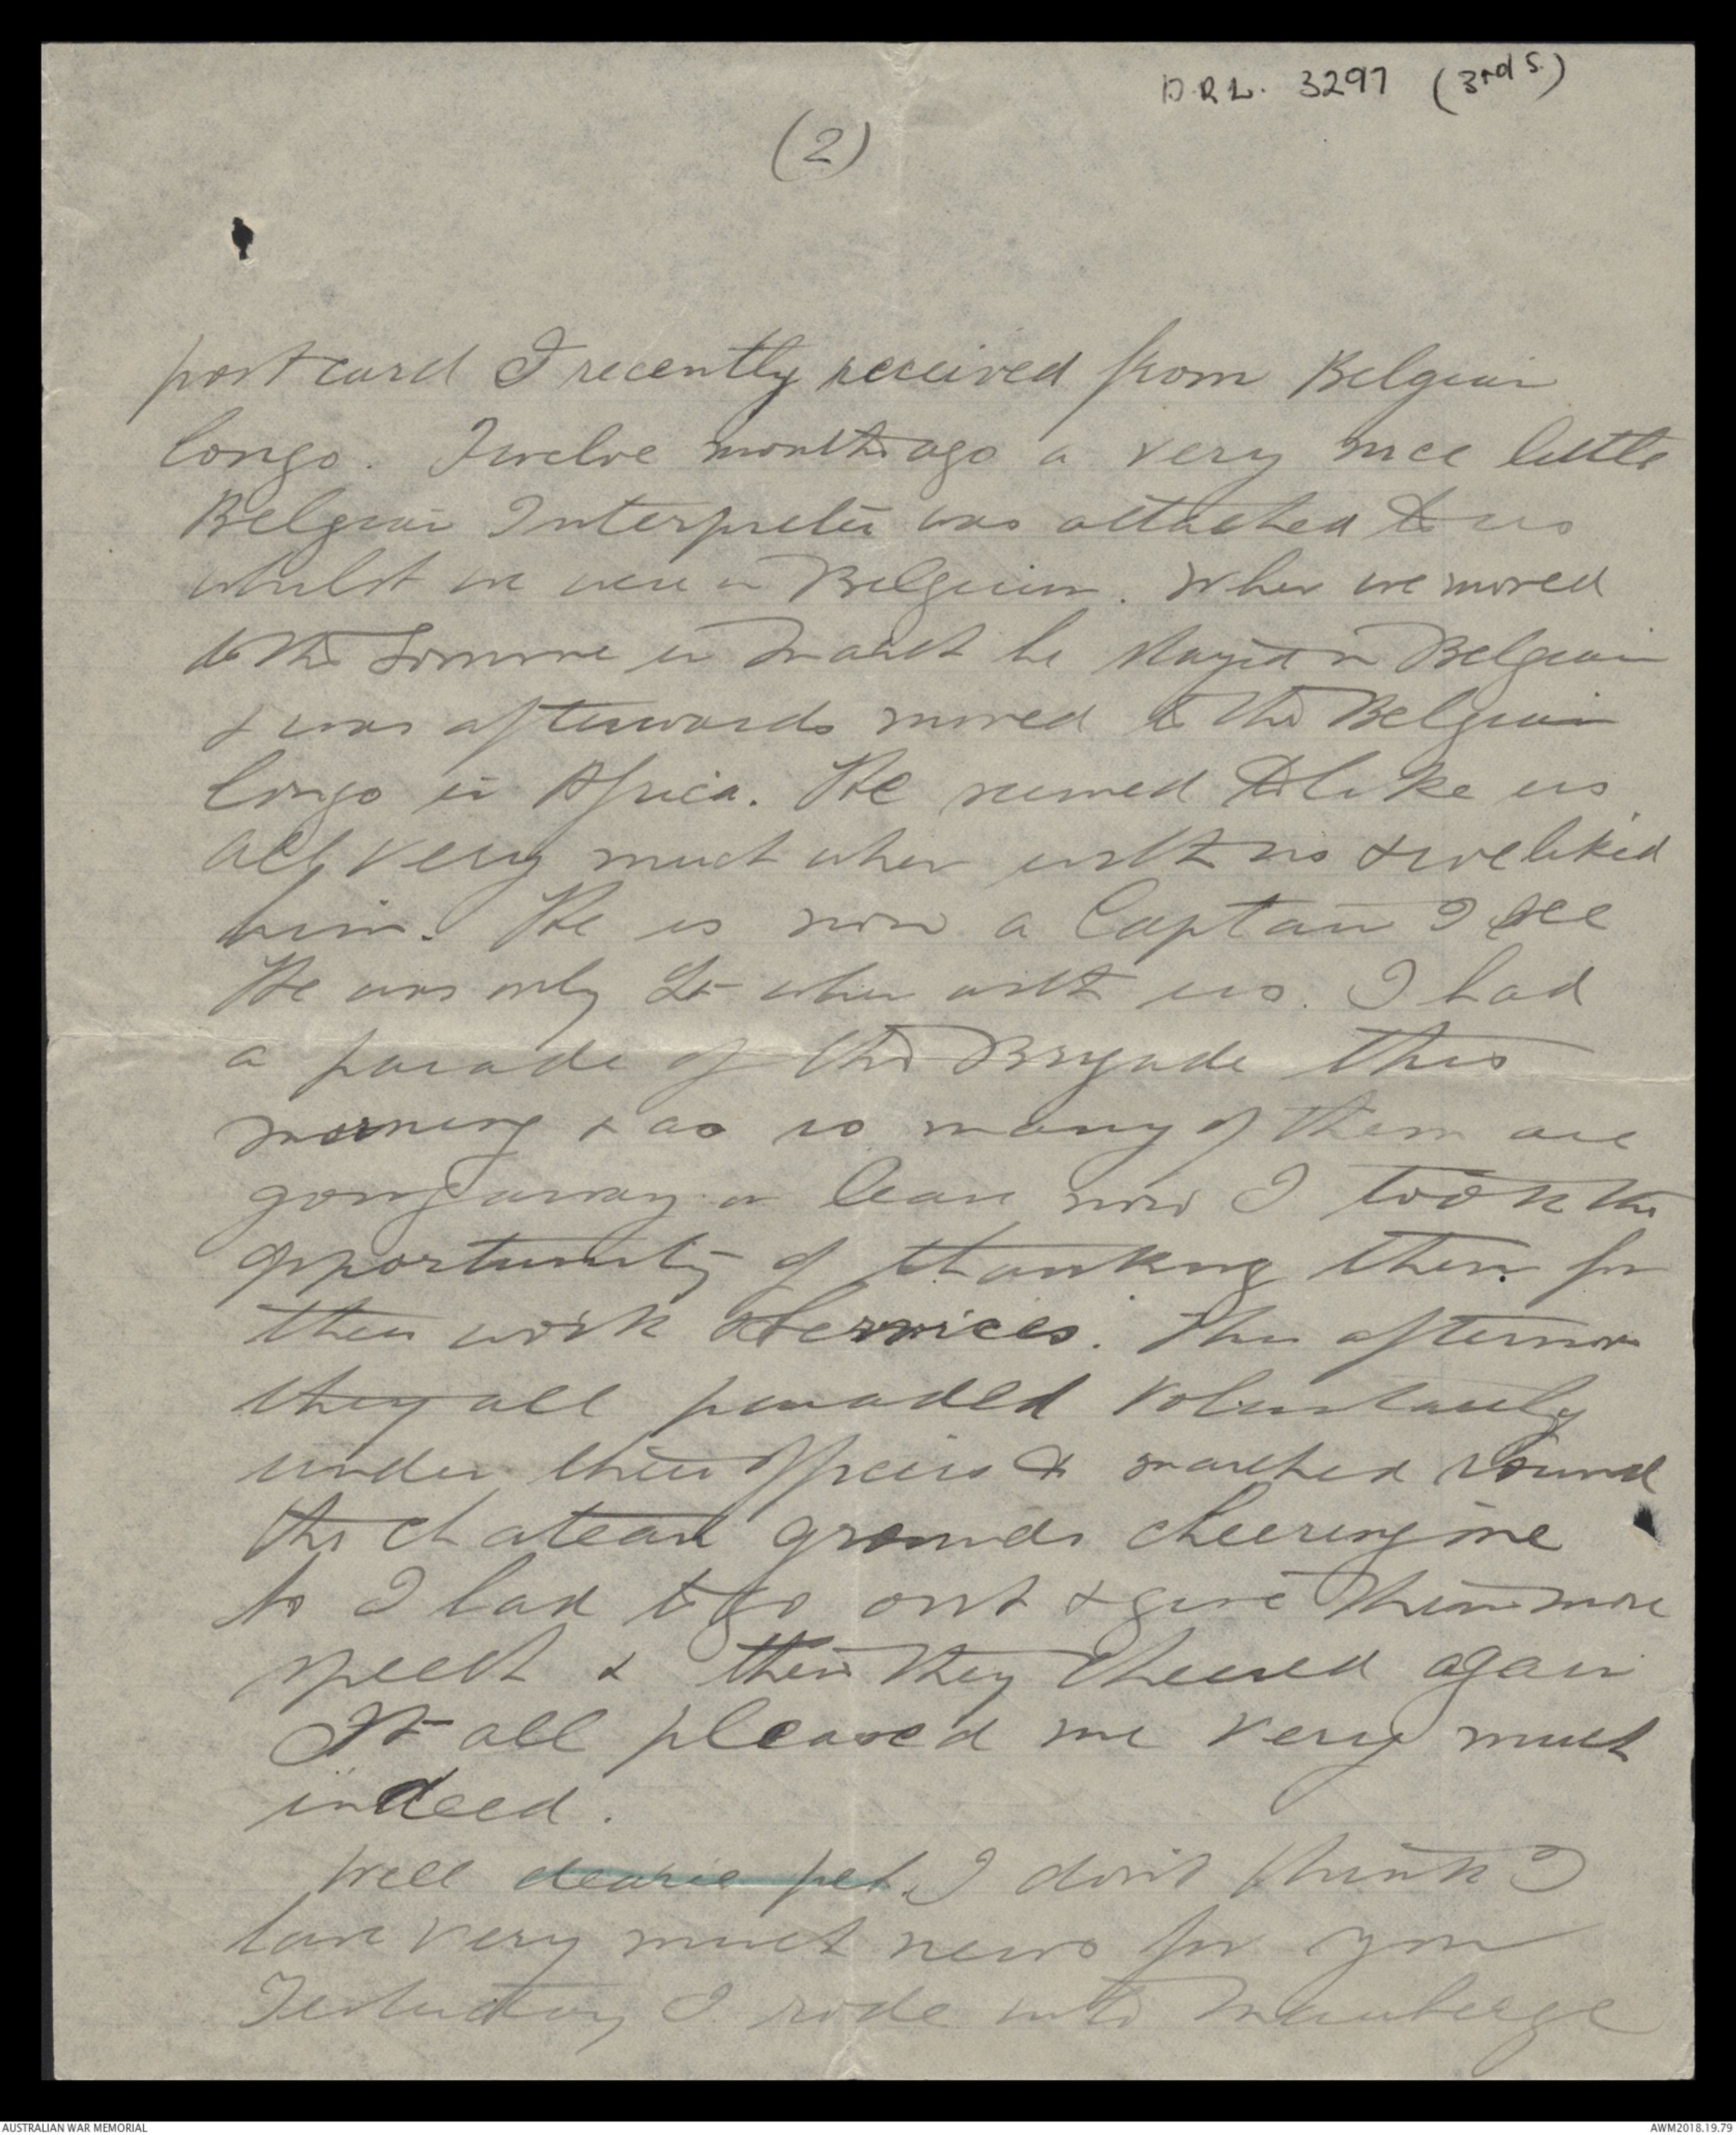 D.R.L. 3297 (3rd S.)
(2)
post card I recently received from Belgian
Congo. Twelve months ago a very nice little
Belgian Interpreter was attached to us
whilst we were in Belgium. When we moved
to the Somme in March he stayed in Belgium
& was afterwards moved to the Belgian
Congo in Africa. He seemed to like us
all very much when with us & we liked
him. He is now a Captain I see
He was only Lt when with us. I had
a parade of the Brigade this
morning & as so many of them are
going away on leave now I took the
opportunity of thanking them for
their work & services. This afternoon
they all paraded voluntarily
under their Officers & marched round
the chateau grounds cheering me
so I had to go out & give them more
speech & then they cheered again
It all pleased me very much
indeed.
Well dearie pet. I don't think I
have very much news for you
Yesterday I rode into Mauberge
AUSTRALIAN WAR MEMORIAL
AWM2018.19.79